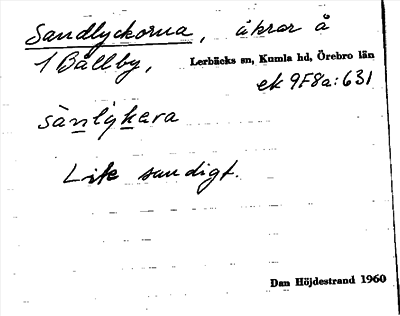 Sandlyckorna, åkrar å
1 Bällby, Lerbäcks sn, Kumla hd, Örebro län
ek 9F8a:631
sànlỳkara
Lite sandigt.
Dan Höjdestrand 1960